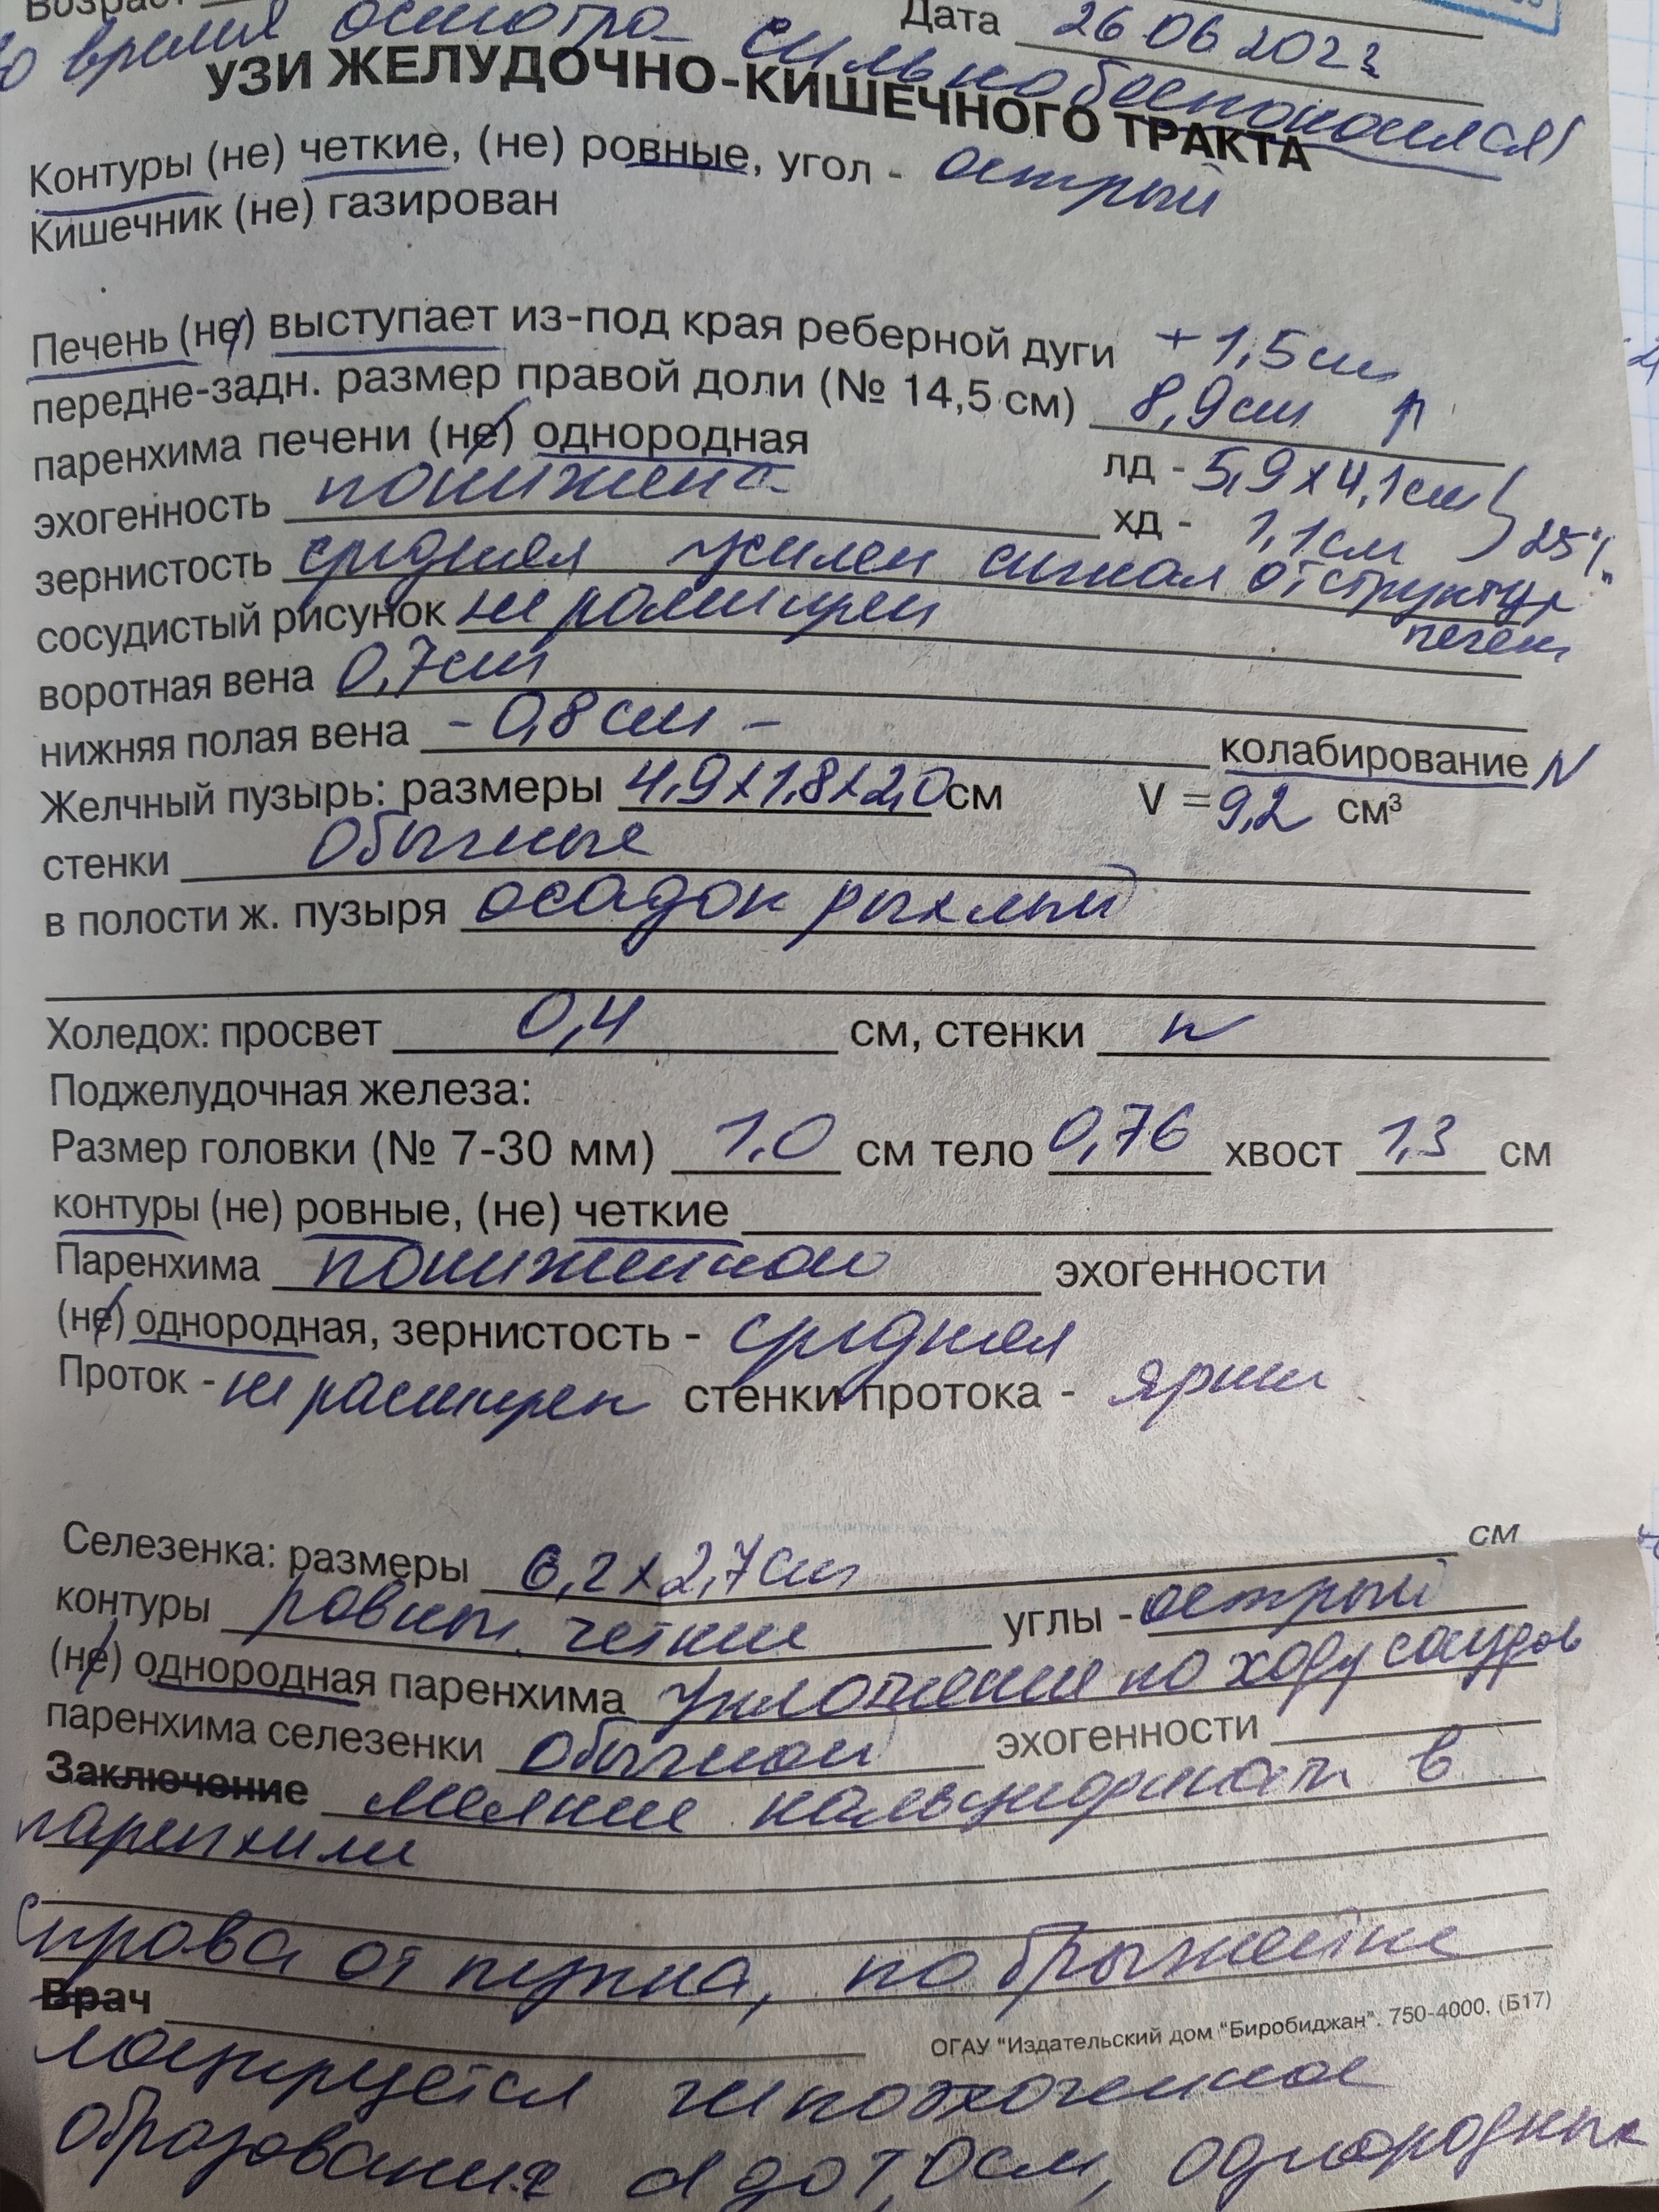 Возраст
Дата 26 06 2023
во время осмотра сильно беспокоился)
УЗИ ЖЕЛУДОЧНО-КИШЕЧНОГО ТРАКТА
Контуры (не) четкие, (не) ровные, угол - острый
Кишечник (не) газирован
Печень (не) выступает из-под края реберной дуги + 1,5см
передне-задн. размер правой доли (№ 14,5 см) 8,9см
паренхима печени (не) однородная лд - 5,9х4,1см
эхогенность понижена хд - 1,1см } 25%
зернистость средняя усилен сигнал от структур
печени
сосудистый рисунок не расширен
воротная вена 0,7см
нижняя полая вена - 0,8 см - колабирование N
Желчный пузырь: размеры 4,9х1,8х2,0см V = 9,2 см³
стенки обычные
в полости ж. пузыря осадок рыхлый
Холедох: просвет 0,4 см, стенки N
Поджелудочная железа:
Размер головки (№ 7-30 мм) 1,0 см тело 0,76 хвост 1,3 см
контуры (не) ровные, (не) четкие
Паренхима пониженной эхогенности
(не) однородная, зернистость - средняя
Проток - не расширен стенки протока - ярки
Селезенка: размеры 6,2х2,7см см
контуры ровные, четкие углы - острый
(не) однородная паренхима уплотнения по ходу сосудов
паренхима селезенки обычной эхогенности
Заключение мелкие кальцификаты в
паренхиме
Справа от пупка, по брыжейке
Врач
ОГАУ "Издательский дом "Биробиджан". 750-4000. (Б17)
лоцируется гипоэхогенное
образования d до 1,0см, однородные